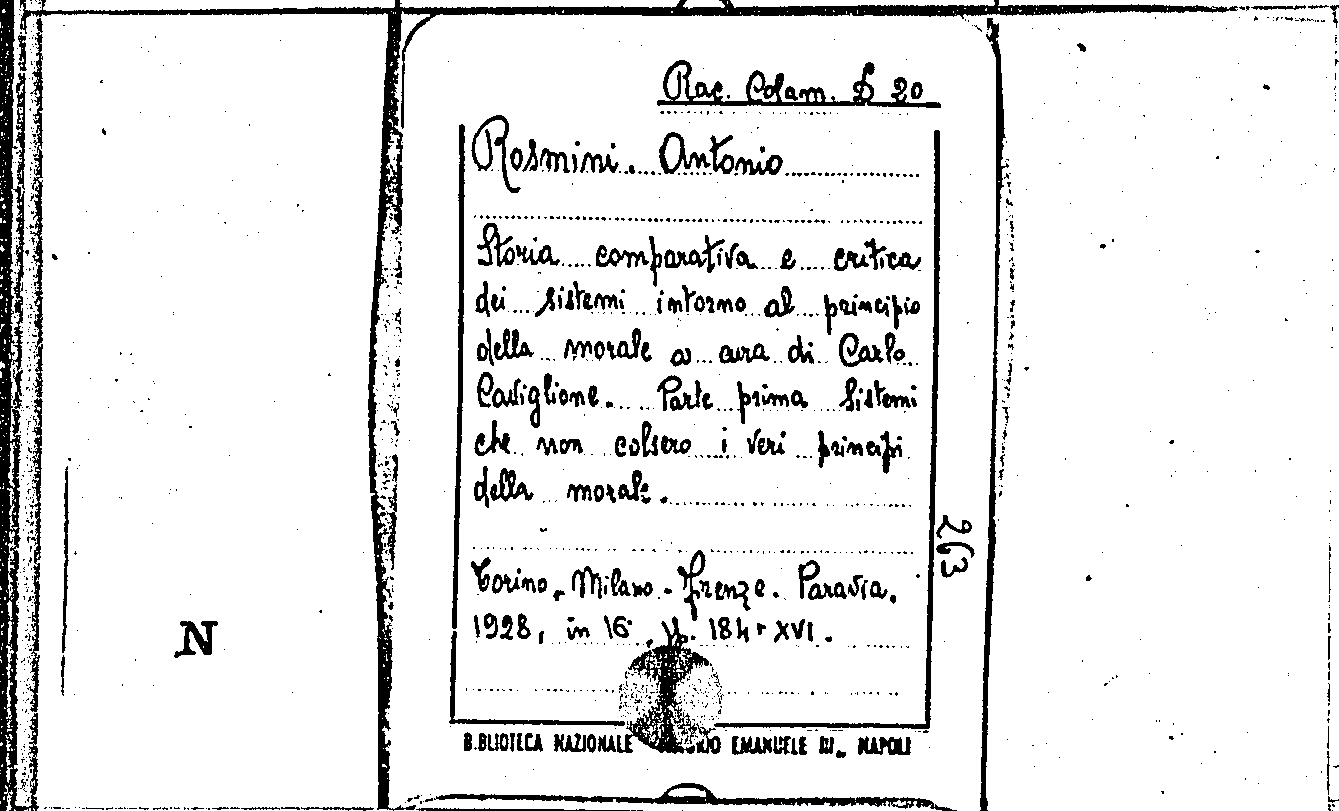 Rac. Colam. D 20
Rosmini. Antonio
Storia comparativa e critica
dei sistemi intorno al principio
della morale a cura di Carlo
Caviglione. Parte prima Sistemi
che non colsero i veri principi
della morale.
263
Torino. Milano - Firenze. Paravia.
1928, in 16° pp. 184 + XVI.
N
BIBLIOTECA NAZIONALE EMANUELE III„ NAPOLI